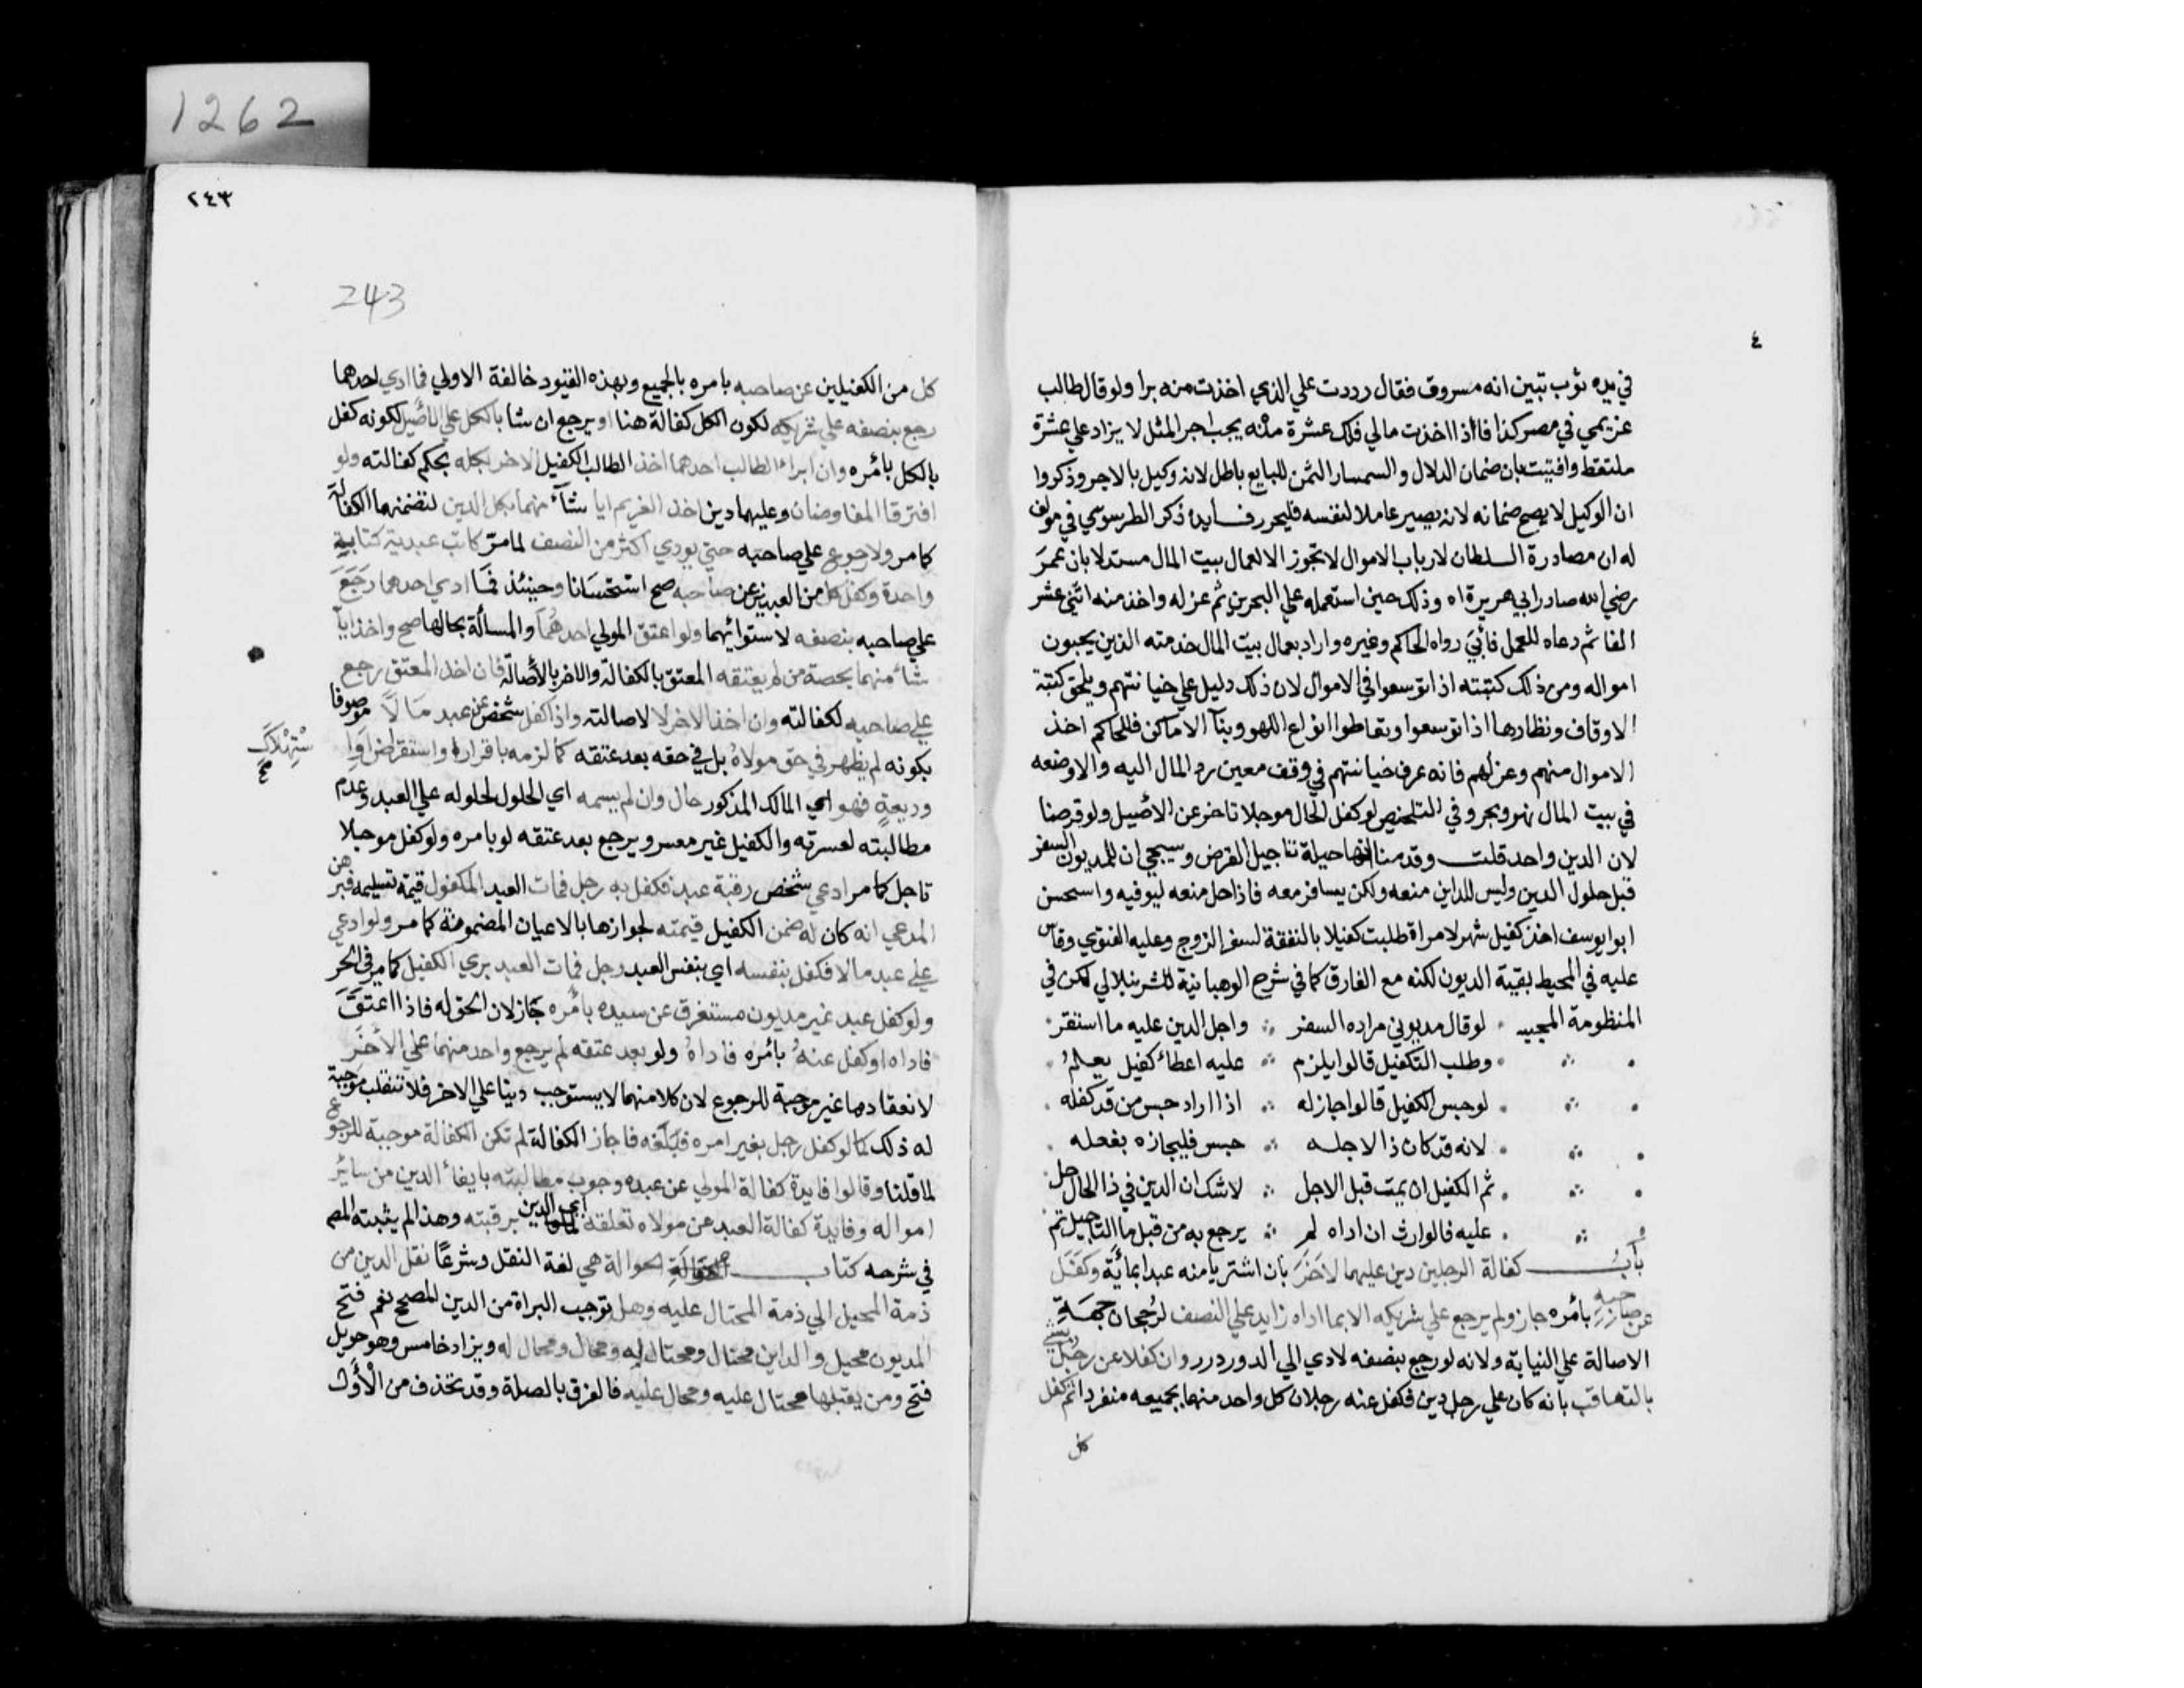 ٤
في يده ثوب تبين انه مسروف فقال رددت علي الذي اخذت منه برا ولو قال طالب
غريمي في مصر كذا فاذا اخذت مالي فلك عشرة منه يجب اجر المثل لا يزاد علي عشرة
ملتقط وافتيت بان ضمان الدلال والسمسار الثمن للبايع باطل لانه وكيل بالاجر وذكروا
ان الوكيل لا يصح ضمانه لانه يصير عاملا لنفسه فليحرر فــايدة ذكر الطرسوسي في مولف
له ان مصادرة السلطان لارباب الاموال لا تجوز الا لعمال بيت المال مستدلا بان عمر
رضي الله صادر ابي هريرة اه وذلك حين استعمله علي البحرين ثم عزله واخذ منه اثني عشر
الفا ثم دعاه للعمل فابي رواه الحاكم وغيره واراد بعمال بيت المال خدمته الذين يجبون
امواله ومن ذلك كتبته اذا توسعوا في الاموال لان ذلك دليل علي خيانتهم ويلحق كتبة
الاوقاف ونظارها اذا توسعوا وتعاطوا انواع اللهو وبنآ الاماكن فللحاكم اخذ
الاموال منهم وعزلهم فانه عرف خيانتهم في وقف معين رد المال اليه والا وضعه
في بيت المال نهر وبحر وفي التلخيص لو كفل الحال موجلا تاخر عن الاصيل ولو قرضا
لان الدين واحد قلت وقدمنا انها حيلة تاجيل القرض وسيجي ان للمديون السفر
قبل حلول الدين وليس للداين منعه ولكن يسافر معه فاذا حل منعه ليوفيه واستحسن
ابو ايوسف اخذ كفيل شهر لامراة طلبت كفيلا بالنفقة لسفر الزوج وعليه الفتوي وقاس
عليه في المحيط بقية الديون لكنه مع الفارق كما في شرح الوهبانية للشرنبلالي لكن في
المنظومة المحبيه لو قال مديوني مراده السفر واجل الدين عليه ما استقر
وطلب التكفيل قالوا يلزم عليه اعطاء كفيل يعلم
لو حبس الكفيل قالوا جاز له اذا اراد حبس من قد كفله
لانه قد كان ذا لاجله حبس فليجازه بفعله
ثم الكفيل ان يمت قبل الاجل لا شك ان الدين في ذا الحال حل
عليه فالوارث ان اداه لم يرجع به من قبل ما التاجيل تم
بابُ كفالة الرجلين دين عليهما لاخر بان اشتريا منه عبدا بماية وكفل
عن صاحبه بامره جاز ولم يرجع علي شريكه الا بما اداه زايد علي النصف لرجحان جهة
الاصالة علي النيابة ولانه لو رجع بنصفه لادي الي الدور درر وان كفلا عن رجل بشي
بالتعاقب بانه كان علي رجل دين فكفل عنه رجلان كل واحد منهما بجميعه منفردا ثم كفل
كل
1262
٢٤٣
243
كل من الكفيلين عن صاحبه بامره بالجميع وبهذه القيود خالفة الاولي فما ادي احدهما
رجع بنصفه علي شريكه لكون الكل كفالة هنا او يرجع ان شا بالكل علي الاصيل لكونه كفل
بالكل بامره وان ابراء الطالب احدهما اخذ الطالب الكفيل الاخر بكله بحكم كفالته ولو
افترقا المفاوضان وعليهما دين اخذ الغريم ايا شآء منهما بكل الدين لتضمنهما الكفالة
كما مر ولا رجوع علي صاحبه حتي يودي اكثر من النصف لما مر كاتب عبديه كتابية
واحدة وكفل كل من العبدين عن صاحبه صح استحسانا وحينئذ فما ادي احدهما رجع
علي صاحبه بنصفه لاستوائهما ولو اعتق المولي احدهما والمسألة بحالها صح واخذ ايا
شاء منهما بحصة من لم يعتقه المعتق بالكفالة والاخر بالأصالة فان اخذ المعتق رجع
علي صاحبه لكفالته وان اخذ الاخر لا لاصالته واذا كفل شخص عن عبد مالا موصوفا
بكونه لم يظهر في حق مولاه بل في حقه بعد عتقه كما لزمه باقراره واستقراض او ا
ستهلاك صح
وديعة فهو اي المالك المذكور حال وان لم يسمه اي الحلول لحلوله علي العبد وعدم
مطالبته لعسرته والكفيل غير معسر ويرجع بعد عتقه لو بامره ولو كفل موجلا
تاجل كما مر ادعي شخص رقبة عبد فكفل به رجل فمات العبد المكفول قيمة تسليمه فبرهن
المدعي انه كان له ضمن الكفيل قيمته لجوازها بالاعيان المضمونة كما مر ولو ادعي
علي عبد مالا فكفل بنفسه اي بنفس العبد رجل فمات العبد بري الكفيل كما مر في الحر
ولو كفل عبد غير مديون مستغرق عن سيده بامره جاز لان الحق له فاذا اعتق
فاداه او كفل عنه بامره فاداه ولو بعد عتقه لم يرجع واحد منهما علي الأخر
لانعقادها غير موجبة للرجوع لان كلا منهما لا يستوجب دينا علي الاخر فلا تنقلب موجبة
له ذلك كما لو كفل رجل بغير امره فبلغه فاجاز الكفالة لم تكن الكفالة موجبة للرجوع
لما قلنا وقالوا فايدة كفالة المولي عن عبده وجوب مطالبته بايفاء الدين من سائر
امواله وفايدة كفالة العبد عن مولاه تعلقه اي الدين برقبته وهذا لم يثبته المص
في شرحه كتاب الحوالة هي لغة النقل وشرعا نقل الدين من
ذمة المحيل الي ذمة المحتال عليه وهل توجب البراة من الدين المصحح نعم فتح
المديون محيل والداين محتال ومحتال له ومحال ومحال له ويزاد خامس وهو حويل
فتح ومن يقبلها محتال عليه ومحال عليه فالفرق بالصلة وقد تحذف من الأول